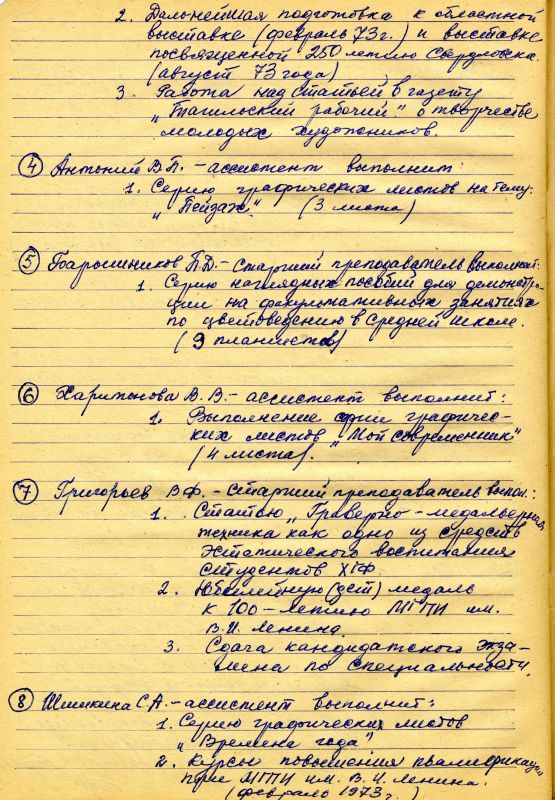 2. Дальнейшая подготовка к областной
выставке (февраль 73 г.) и выставке
посвященной 250 летию Свердловска.
(август 73 года)
3. Работа над статьей в газету
„Тагильский рабочий" о творчестве
молодых художников.
④ Антоний В.П. - ассистент выполнит:
1. Серию графических листов на тему:
„Пейзаж." (3 листа)
⑤ П.Д. - Старший преподаватель выполнит:
1. Серию наглядных пособий для демонстра-
ции на факультативных занятиях
по цветоведению в средней школе.
(9 планшетов)
⑥ Харитонова В.В. - ассистент выполнит:
1. Выполнение графичес-
ких листов „Мой современник"
(4 листа).
⑦ Григорьев В.Ф. - Старший преподаватель выпол.:
1. Статью „Граверно-медальерная
техника как одно из средств
эстетического воспитания
студентов ХГФ.
2. Юбилейную (наст) медаль
к 100-летию МГПИ им.
В.И. Ленина.
3. Сдача кандидатского экза-
мена по специальности.
⑧ Шишкина С.А. - ассистент выполнит:
1. Серию графических листов
„Времена года"
2. Курсы повышения квалификации
при МГПИ им. В.И. Ленина.
(февраль 1973 г.)